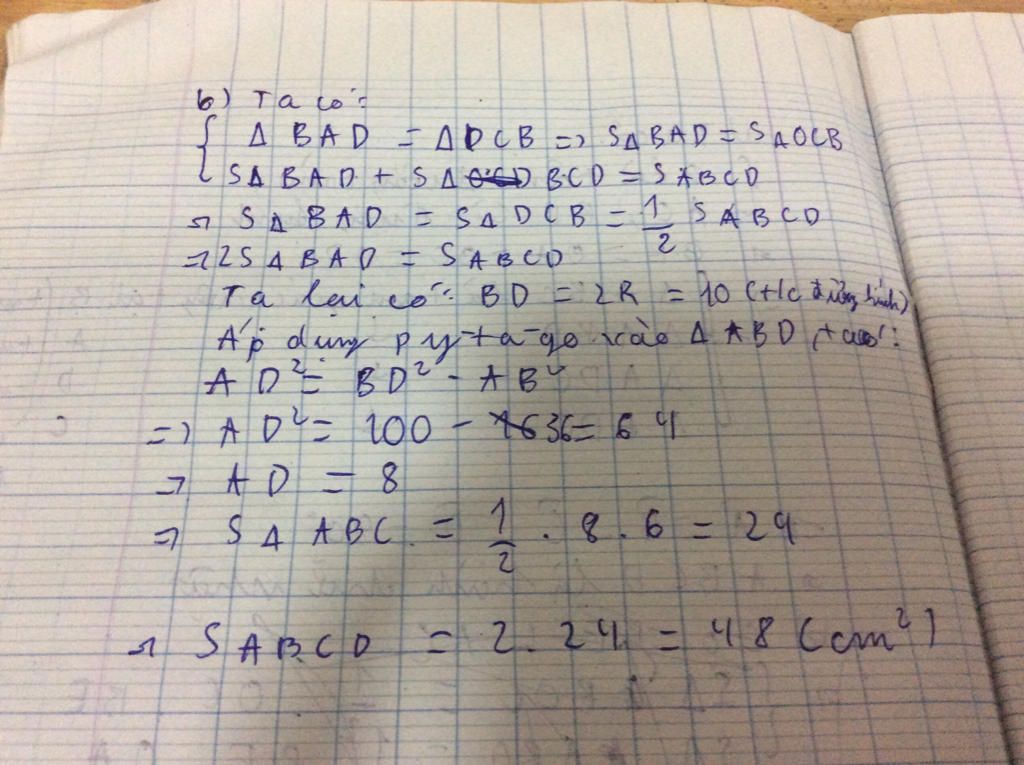 b) Ta có:
{ Δ BAD = Δ DCB => SΔ BAD = SΔ DCB
SΔ BAD + SΔ BCD = SABCD
=> SΔ BAD = SΔ DCB = 1/2 SABCD
=> 2SΔ BAD = SABCD
Ta lại có: BD = 2R = 10 (t/c đường kính)
Áp dụng py-ta-go vào Δ ABD, ta có:
AD² = BD² - AB²
=> AD² = 100 - 36 = 64
=> AD = 8
=> SΔ ABC = 1/2 . 8 . 6 = 24
=> SABCD = 2 . 24 = 48 (cm²)